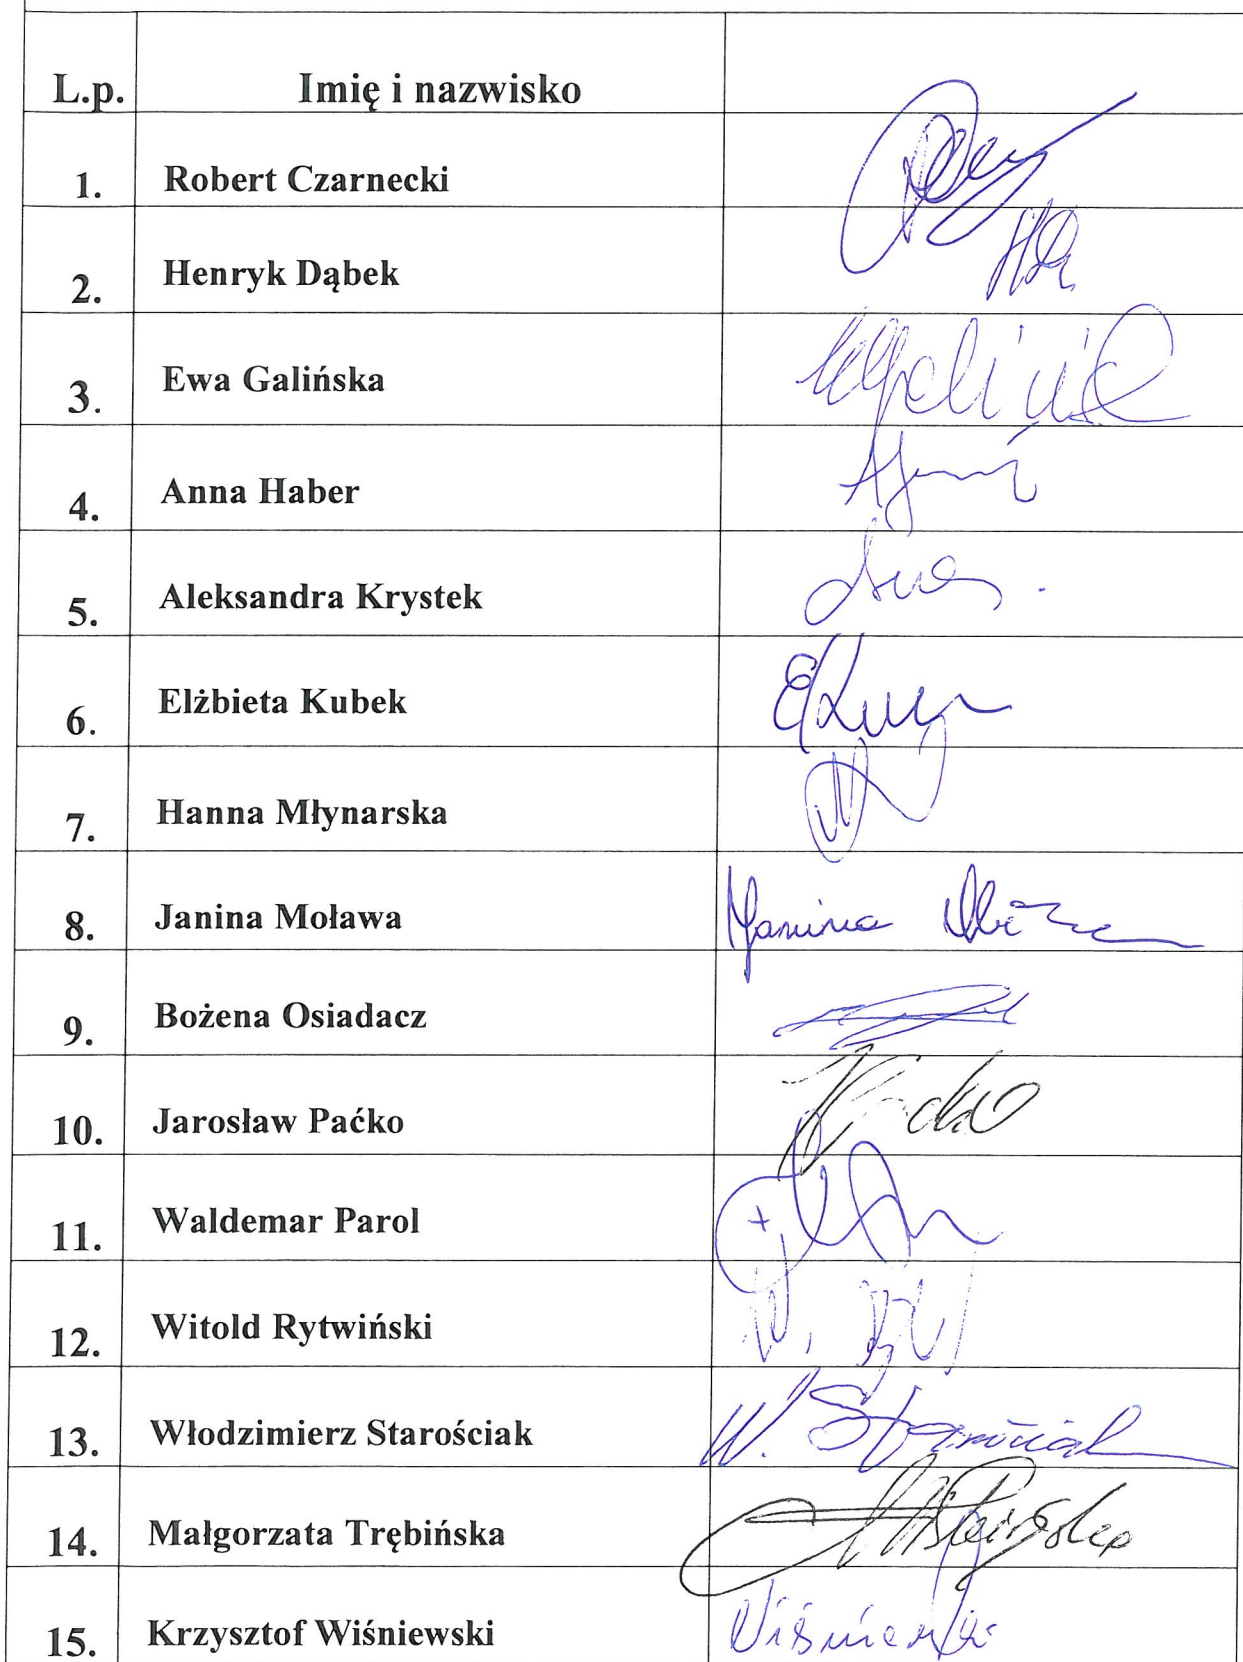 L.p. Imię i nazwisko
1. Robert Czarnecki
2. Henryk Dąbek
3. Ewa Galińska
4. Anna Haber
5. Aleksandra Krystek
6. Elżbieta Kubek
7. Hanna Młynarska
8. Janina Moława Janina
9. Bożena Osiadacz
10. Jarosław Paćko
11. Waldemar Parol
12. Witold Rytwiński
13. Włodzimierz Starościak W. Starościak
14. Małgorzata Trębińska
15. Krzysztof Wiśniewski Wiśniewski